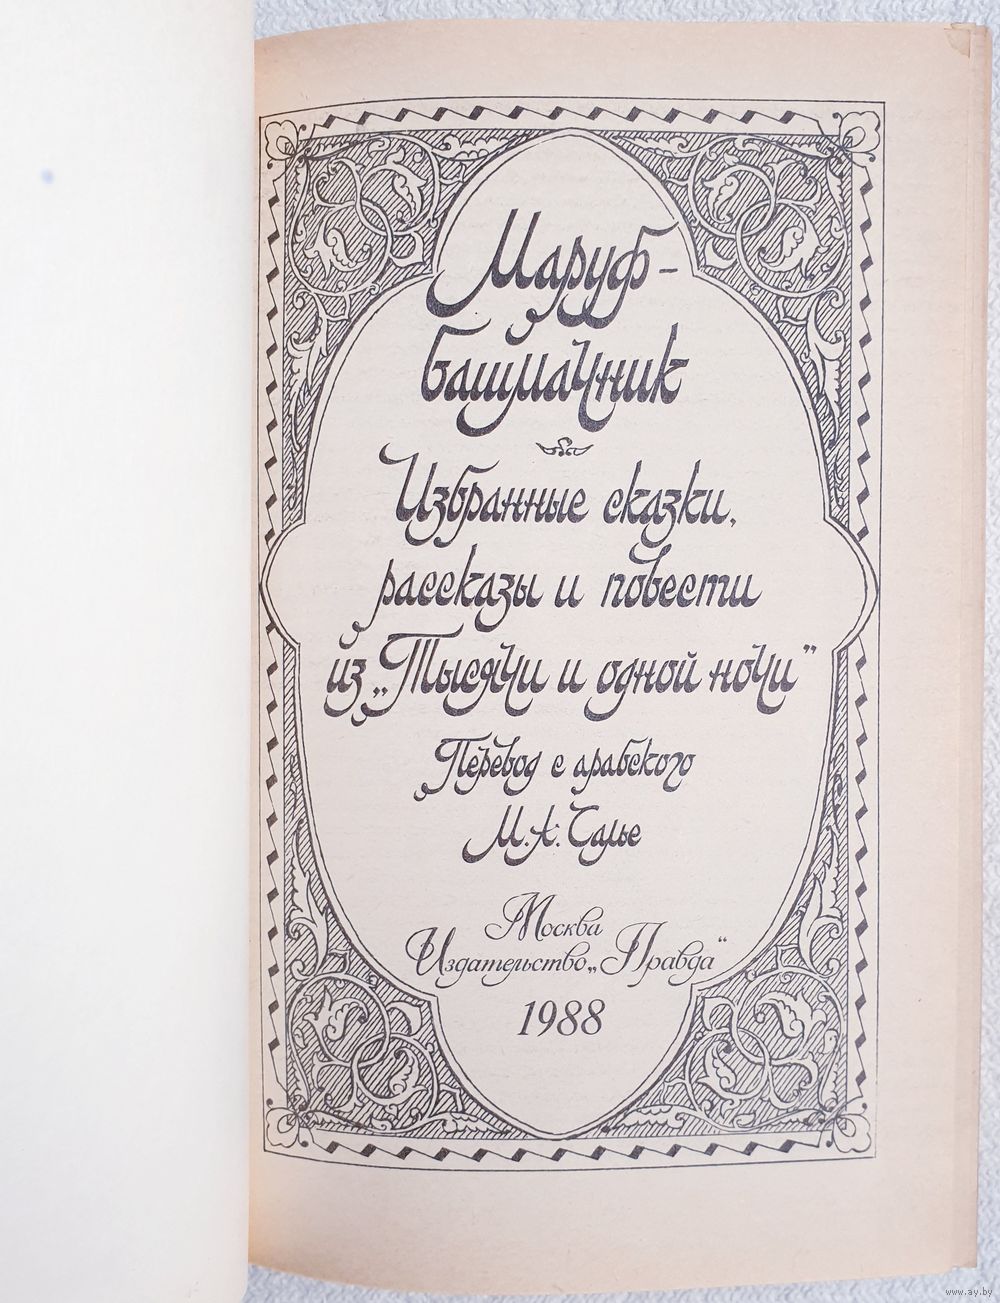 Маруф-
башмачник
Избранные сказки,
рассказы и повести
из „Тысячи и одной ночи”
Перевод с арабского
М.А. Салье
Москва
Издательство „Правда“
1988
www.ay.by